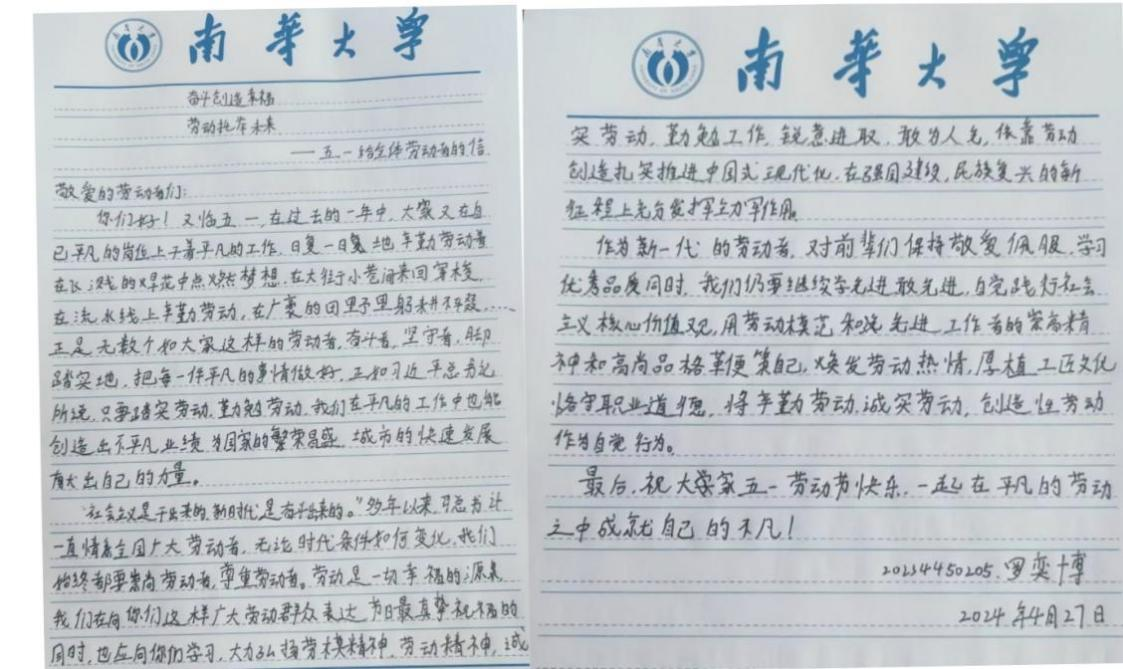 南华大学
奋斗创造幸福
劳动托举未来
——五一给全体劳动者的信
敬爱的劳动者们：
你们好！又临五一，在过去的一年中，大家又在自
己平凡的岗位上干着平凡的工作，日复一日地辛勤劳动着
在飞溅的焊花中点燃梦想，在大街小巷间来回穿梭，
在流水线上辛勤劳动，在广袤的田野里躬耕不辍，……
正是无数个和大家这样的劳动者，奋斗者，坚守者，脚
踏实地，把每一件平凡的事情做好，正如习近平总书记
所说，只要踏实劳动，勤勉劳动，我们在平凡的工作中也能
创造出不平凡业绩，为国家的繁荣昌盛，城市的快速发展
献出自己的力量。
“社会主义是干出来的，新时代是奋斗出来的。”多年以来，习总书记
一直情系全国广大劳动者，无论时代条件如何变化，我们
始终都要崇尚劳动者，尊重劳动者。劳动是一切幸福的源泉
我们在向你们这样广大劳动群众表达节日最真挚祝福的
同时，也应向你们学习，大力弘扬劳模精神，劳动精神，诚
南华大学
实劳动，勤勉工作，锐意进取，敢为人先，依靠劳动
创造扎实推进中国式现代化，在强国建设，民族复兴的新
征程上充分发挥主力军作用
作为新一代的劳动者，对前辈们保持敬爱佩服，学习
优秀品质同时，我们仍要继续学先进敢先进，自觉践行社会
主义核心价值观，用劳动模范和先进工作者的崇高精
神和高尚品格鞭策自己，焕发劳动热情，厚植工匠文化
恪守职业道德，将辛勤劳动，诚实劳动，创造性劳动
作为自觉行为。
最后，祝大家五一劳动节快乐，一起在平凡的劳动
之中成就自己的不凡！
20234450205 罗奕博
2024年4月27日